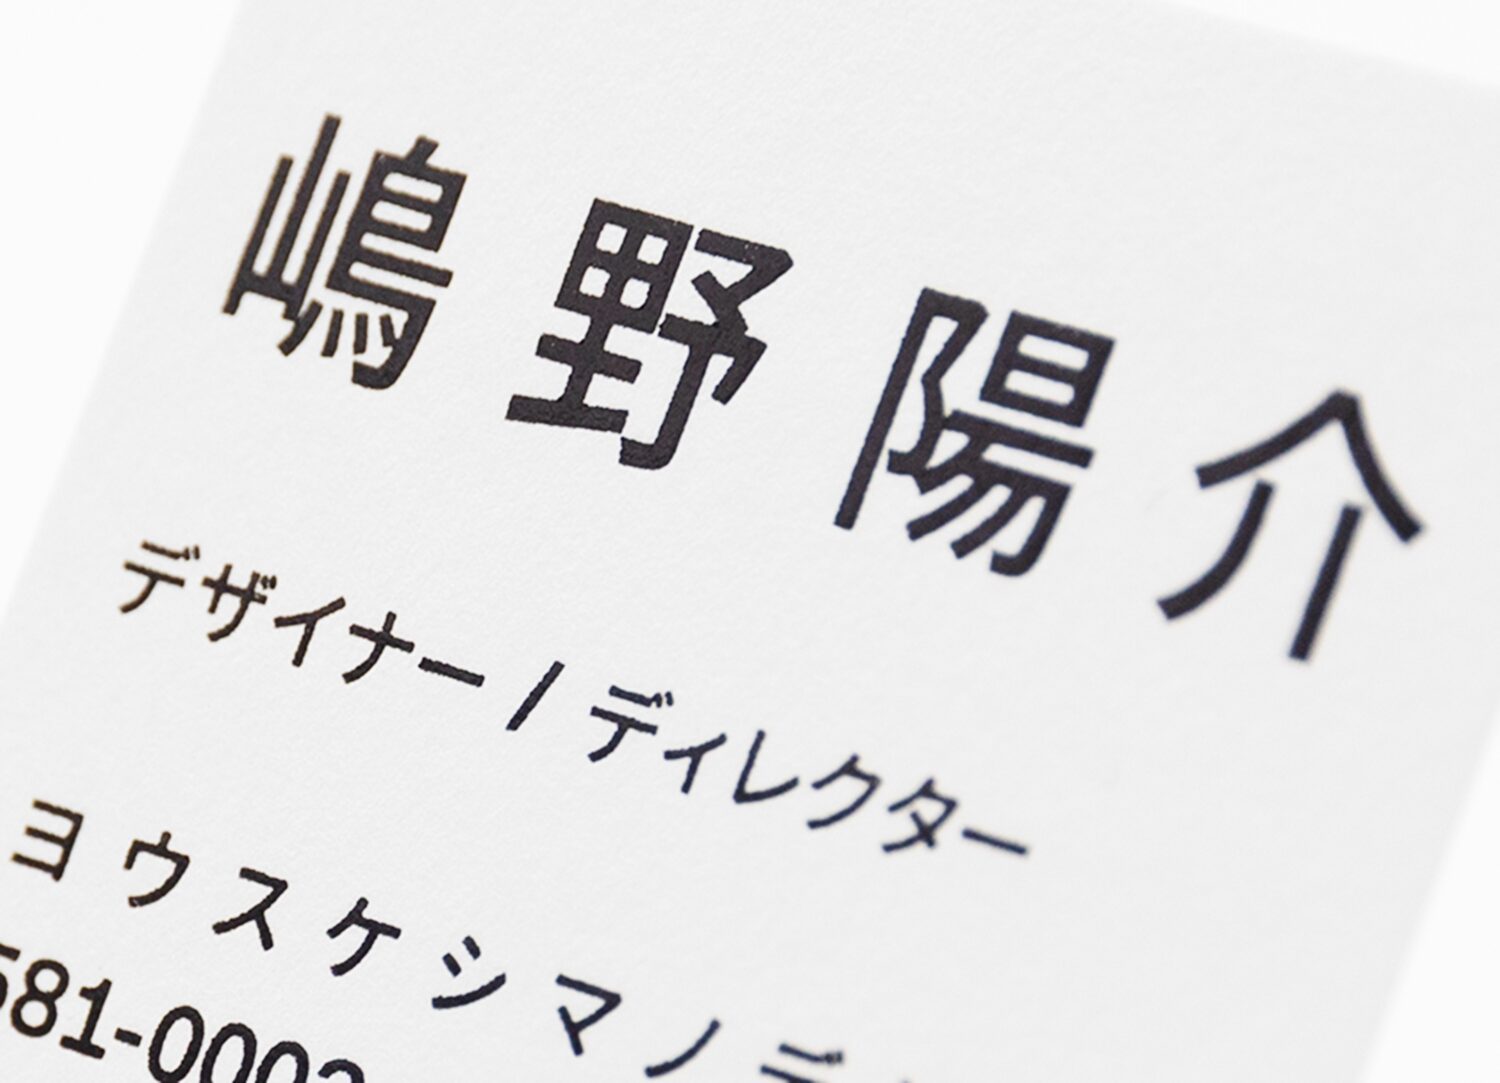 嶋野陽介
デザイナー / ディレクター
ヨウスケシマノデ
581-000